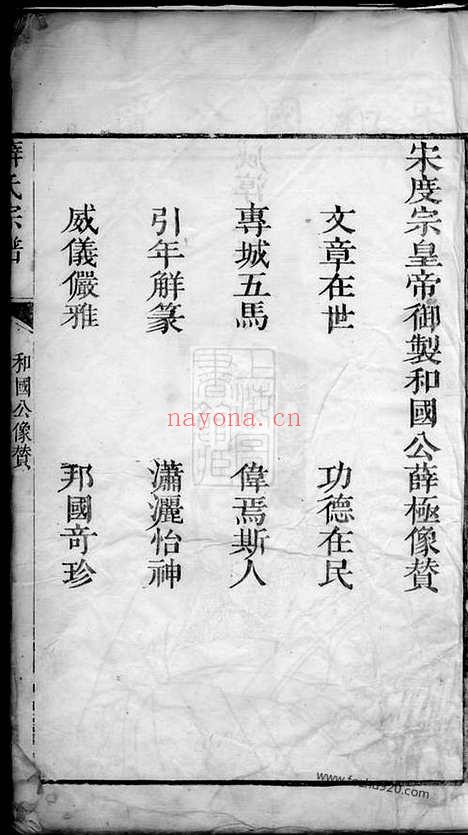 宋度宗皇帝御製和國公薛極像贊
文章在世 功德在民
專城五馬 偉焉斯人
引年解篆 瀟灑怡神
威儀儼雅 邦國奇珍
薛氏宗譜
和國公像贊
nayona.cn